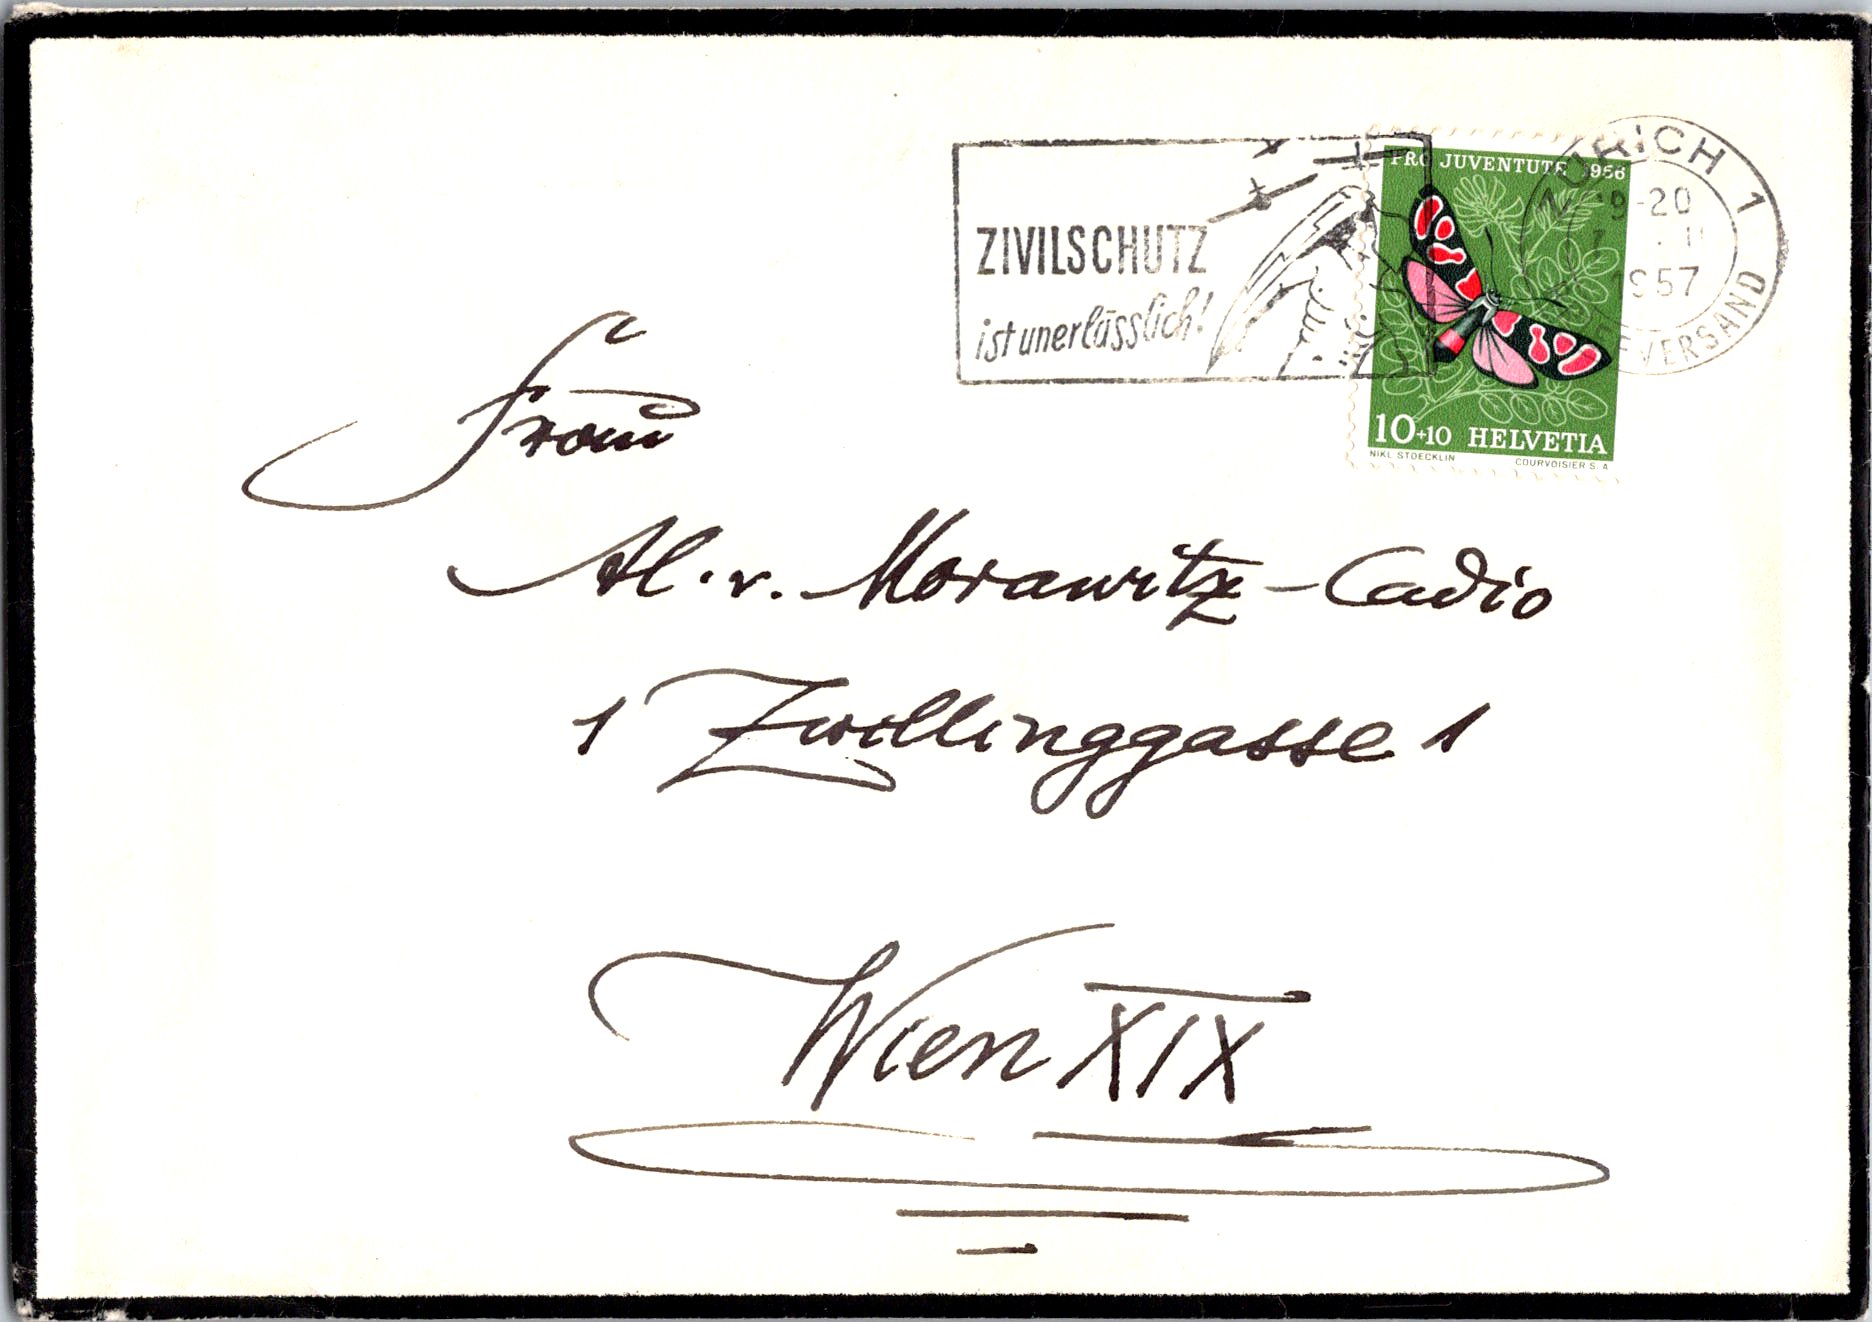 ZIVILSCHUTZ
ist unerlässlich!
PRO JUVENTUTE 1956
ZÜRICH 1
19-20
II
1957
BRIEFVERSAND
10+10 HELVETIA
NIKL STOECKLIN COURVOISIER S. A.
Frau
Al. v. Morawitz-Cadio
1 Zwillinggasse 1
Wien XIX